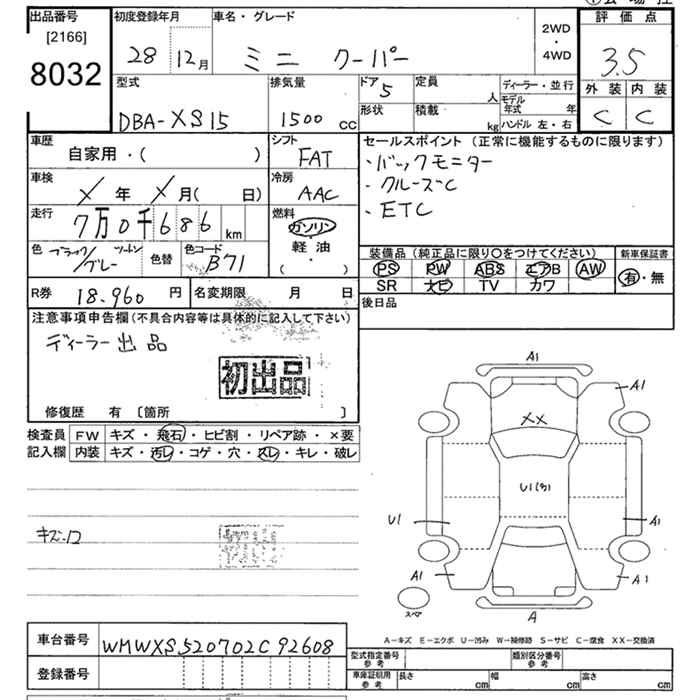 出品番号
[2166]
8032
初度登録年月
28 12月
車名・グレード
ミニ クーパー
2WD
・
4WD
評価点
3.5
外装 内装
C C
型式
DBA-XS15
排気量
1500 cc
ドア
5
定員
人
形状
積載
kg
ディーラー・並行
モデル年式 年
ハンドル 左・右
車歴
自家用・( )
シフト
FAT
セールスポイント (正常に機能するものに限ります)
・バックモニター
・クルーズC
・ETC
車検
X年 X月( 日)
冷房
AAC
走行
7万0千686km
燃料
ガソリン
・
軽油
( ・ )
色
ブラック/グレー ツートン
色替
色コード
B71
装備品 (純正品に限り○をつけてください)
PS PW ABS エアB AW
SR ナビ TV カワ
新車保証書
有・無
R券 18.960円
名変期限 月 日
後日品
注意事項申告欄 (不具合内容等は具体的に記入して下さい)
ディーラー出品
初出品
修復歴 有 [箇所 ]
検査員 FW キズ・飛石・ヒビ割・リペア跡・×要
記入欄 内装 キズ・汚レ・コゲ・穴・スレ・キレ・破レ
キズ・凹
A1
A1
XX
U1
A1
A1
A1
スペア
A
A-キズ E-エクボ U-凹み W-補修跡 S-サビ C-腐食 XX-交換済
車台番号 WMWXS520702C92608
登録番号
型式指定番号 参考
類別区分番号 参考
車庫証明用 参考
長さ cm
幅 cm
高さ cm